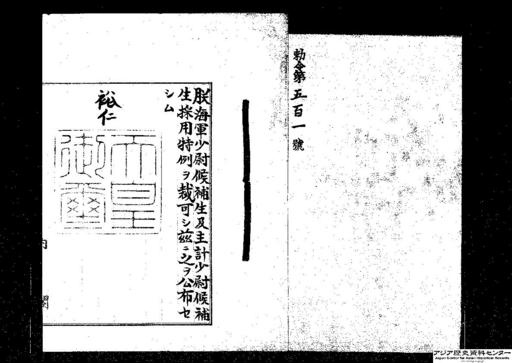 勅令第五百一號
朕海軍少尉候補生及主計少尉候補
生採用特例ヲ裁可シ茲ニ之ヲ公布セ
シム
裕仁
天皇
御璽
内閣
アジア歴史資料センター
Japan Center for Asian Historical Records